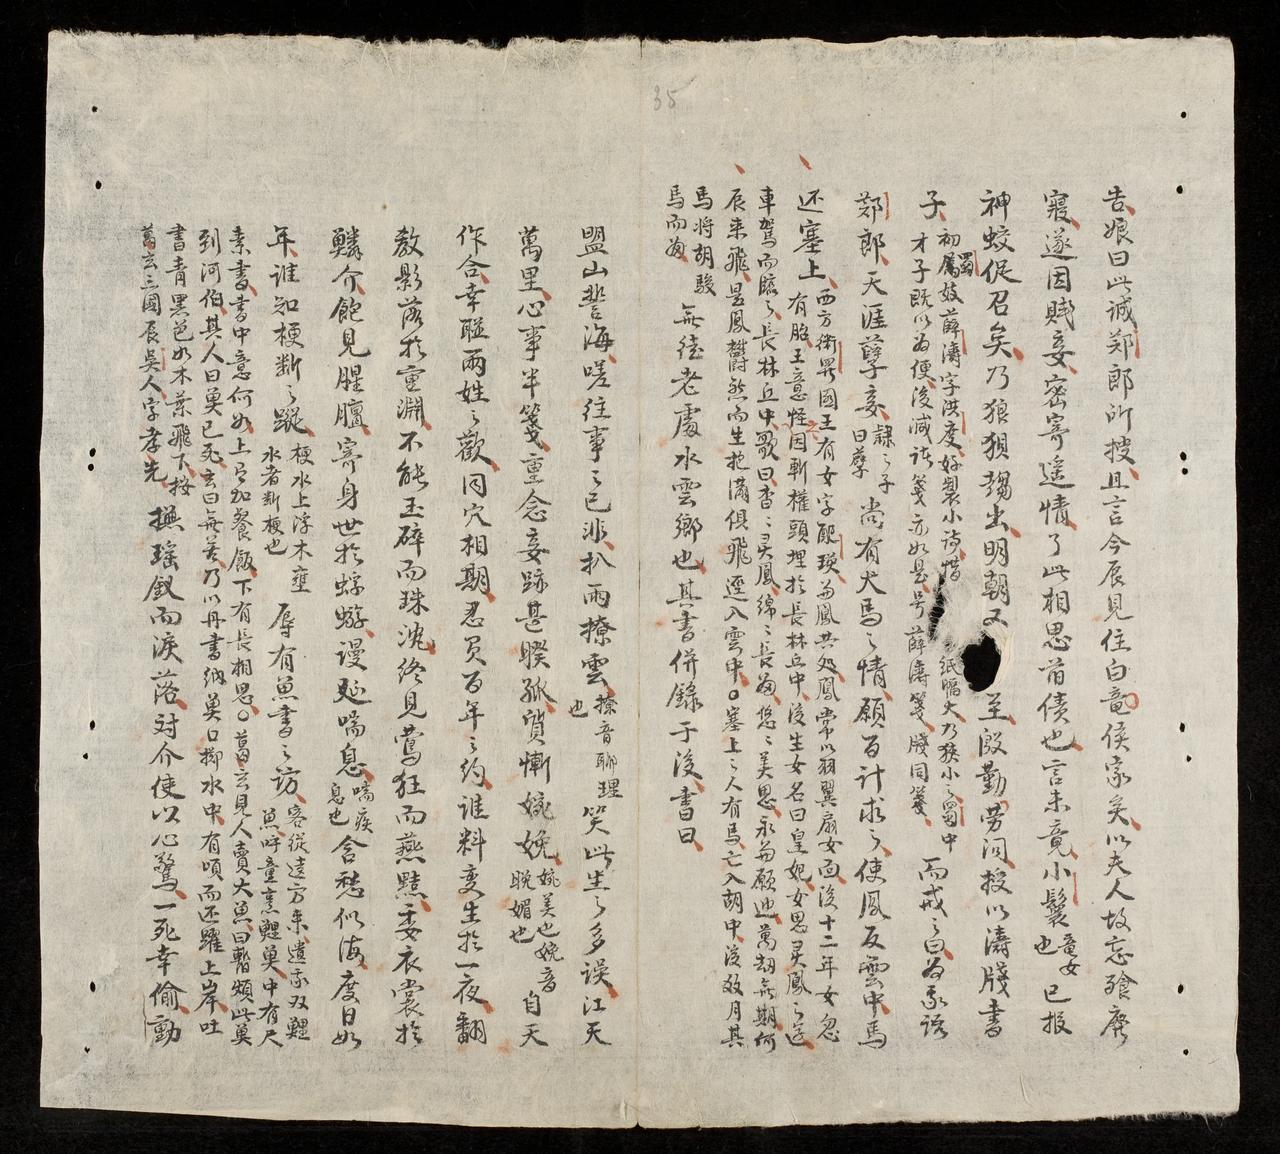 35
告娘曰此誠郑郎所授且言今辰見住白竜侯家矣以夫人故忘飱廢
寢遂因賤妾密寄遥情了此相思昔債也言未竟小鬟竜女也已报
神蛟促召矣乃狼狽趨出明朝又至殷勤勞问授以濤牋書
子初属蜀妓薛濤字洪度好製小诗惜紙幅大乃狭小之蜀中
才子既以为便後减诸箋亦如是号薛濤箋牋同箋而戒之曰为我語
郑郎天涯孽妾隷之子曰孽尚有犬馬之情願百计求之使凤反雲中馬
还塞上西方衛羅國王有女字配瑛与鳳共处鳳常以羽翼扇女面後十二年女忽
有胎王意怪因斬權頭埋於長林丘中後生女名曰皇妃女思灵鳳之遊
車駕而臨之長林丘中歌曰杳之灵鳳綿之長为悠之美思永为願迪萬劫無期何
辰来飛昱鳳欝然而生抱滿俱飛逕入雲中〇塞上之人有馬亡入胡中後数月其
馬将胡駿
馬而为無徒老處水雲鄉也其書併錄于後書曰
盟山誓海嗟往事之已非扒雨撩雲撩音聊理也笑此生之多误江天
萬里心事半箋重念妾跡甚睽孤質慚婉娩婉美也娩音晚媚也自天
作合幸聮兩姓之歡同穴相期忍負百年之約谁料变生於一夜翻
教影落於重淵不能玉碎而珠沈终見鶯狂而燕黠委衣裳於
鱗介飽見腥膻寄身世於蜉蝣謾延喘息喘疾息也含愁似海度日如
年谁知梗断之蹤梗水上浮木壅水者断梗也辱有魚書之访客從遠方来遺我双鯉
魚呼童烹鯉奠中有尺
素書書中意何如上言加餐飯下有長相思〇葛玄見人賣大魚曰暫煩此奠
到河伯其人曰奠已死玄曰無苦乃以丹書纳奠口掷水中有頃而还躍上岸吐
書青黑色如木葉飛下按
葛玄三國辰吳人字孝先撫瑤釵而淚落对介使以心驚一死幸偷動